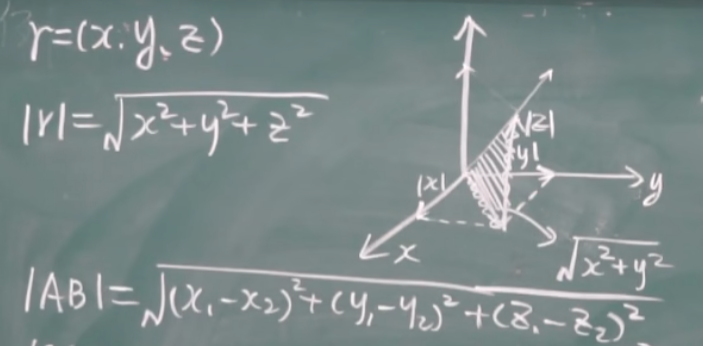 r=(x.y.z)
|r|=√x²+y²+z²
|z|
|y|
|x|
y
x
√x²+y²
|AB|=√(x₁-x₂)²+(y₁-y₂)²+(z₁-z₂)²